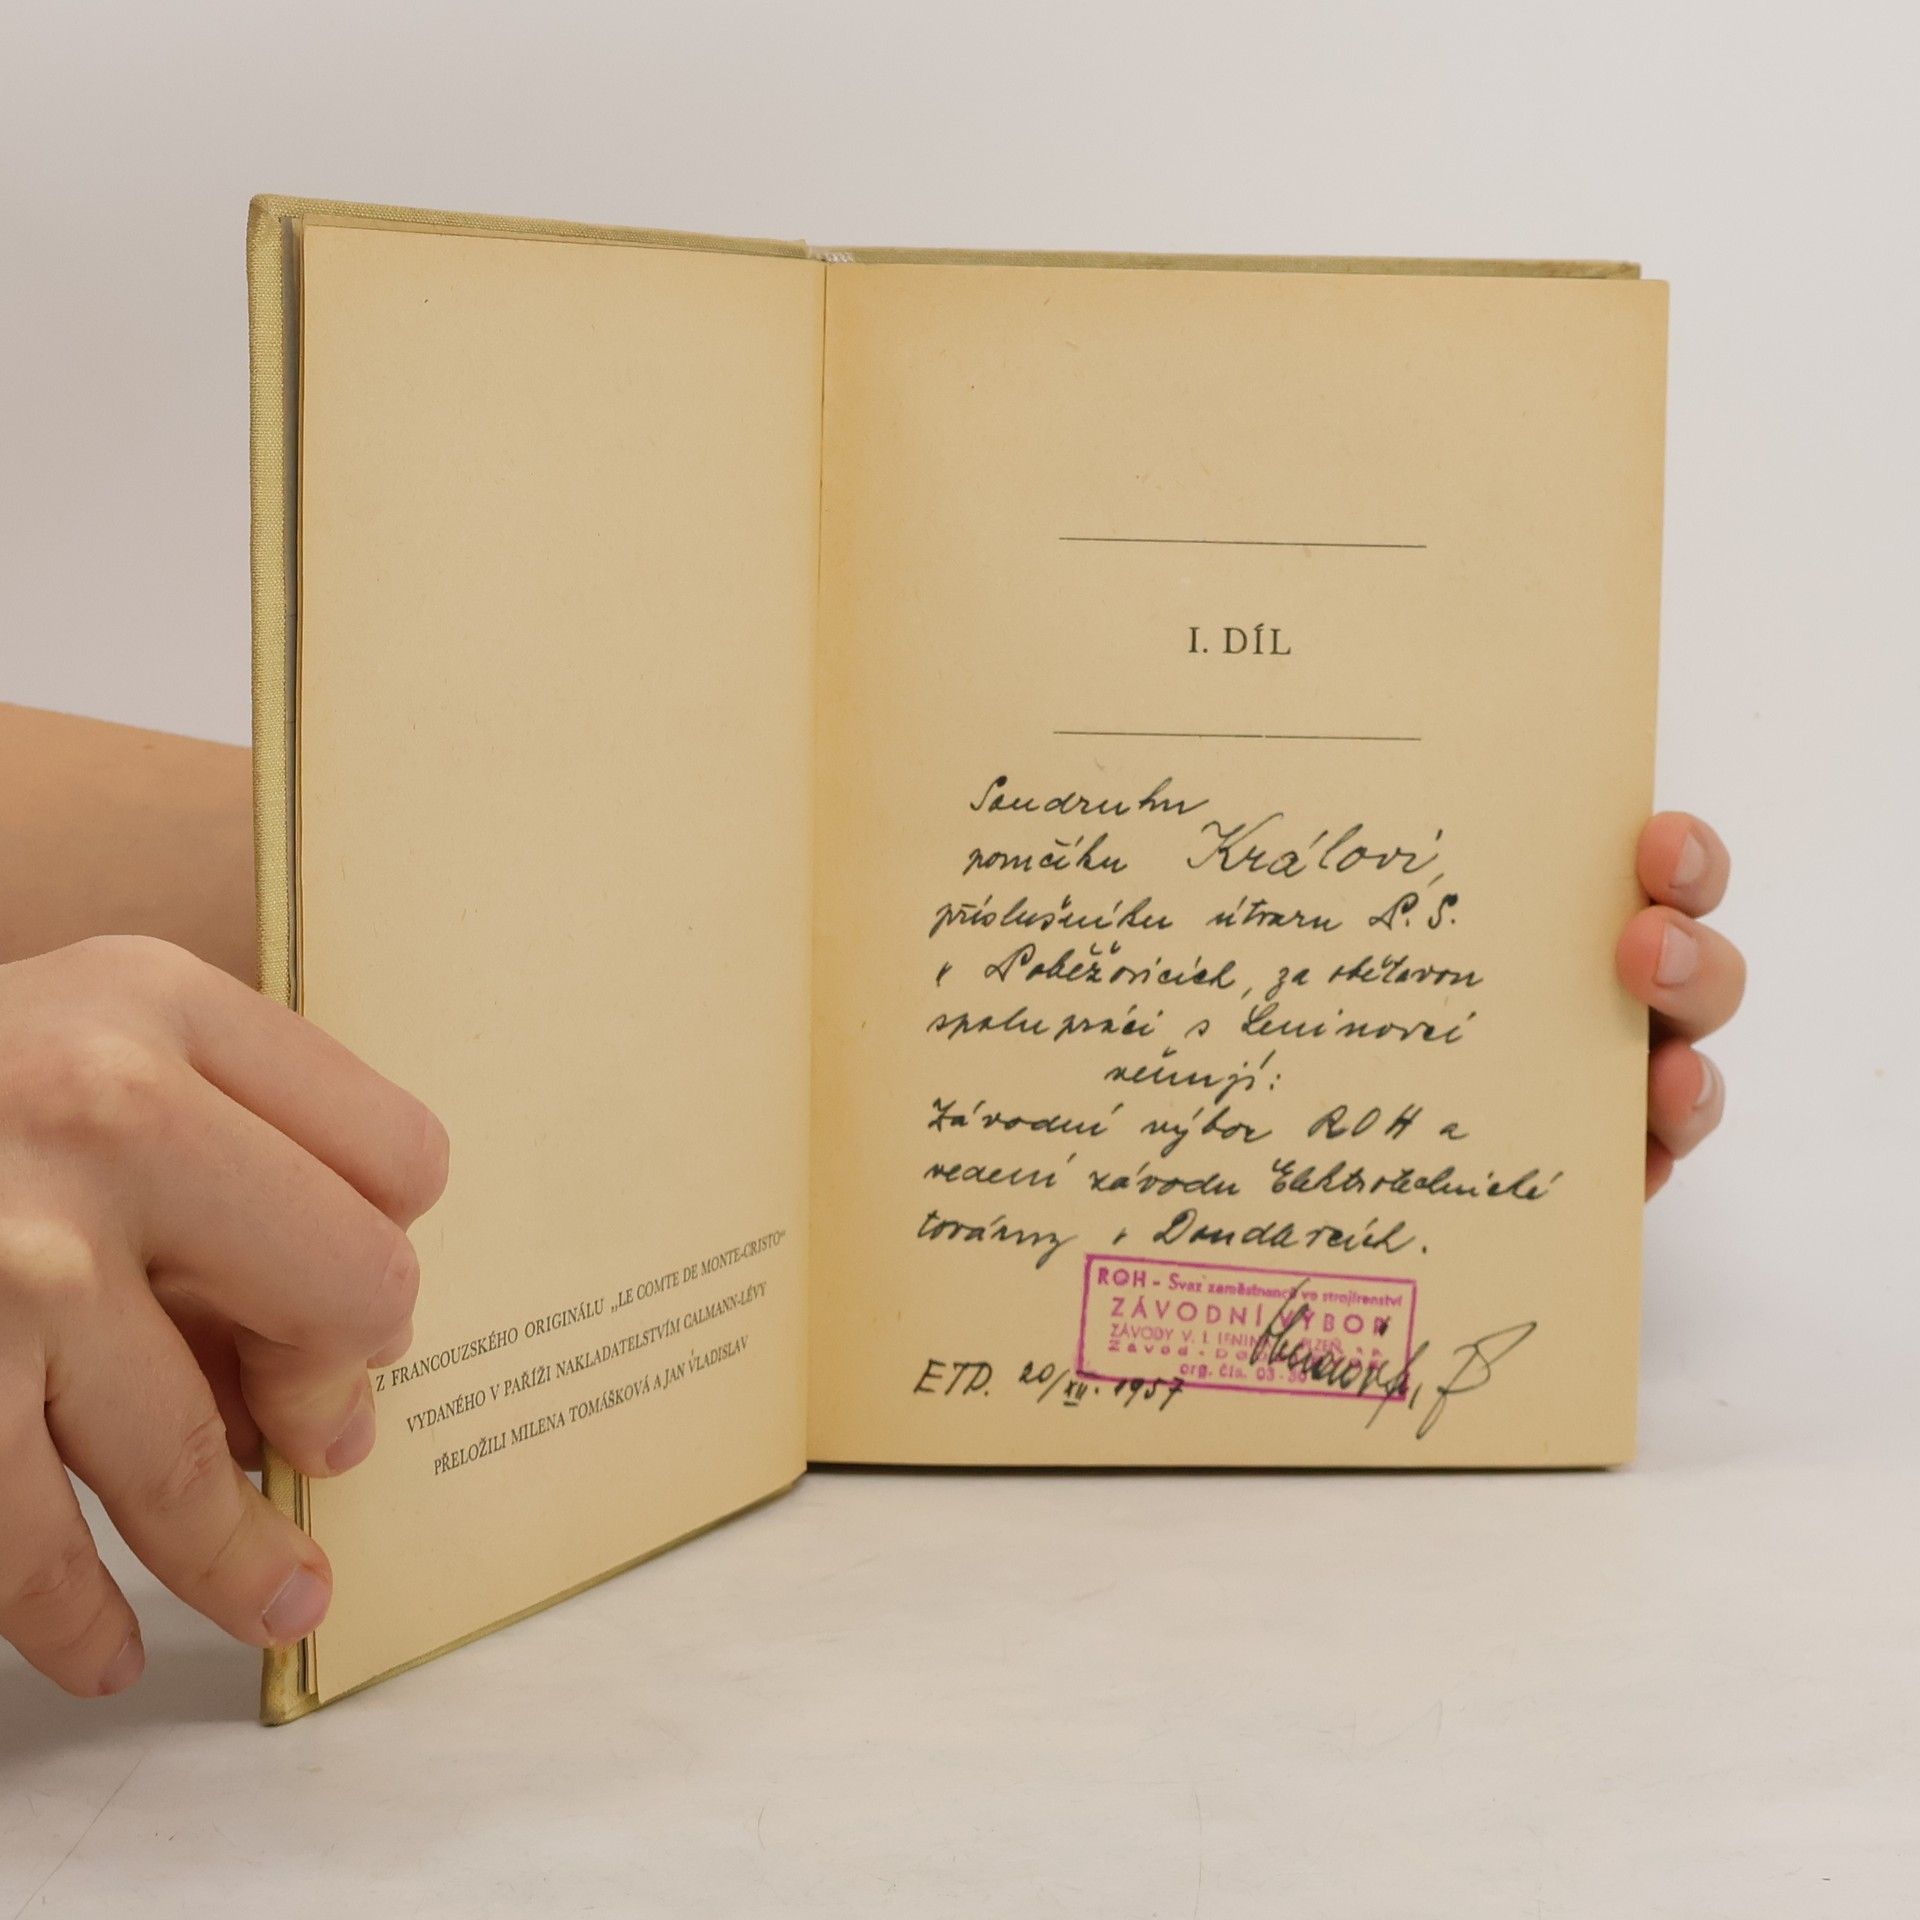 Z FRANCOUZSKÉHO ORIGINÁLU „LE COMTE DE MONTE-CRISTO“
VYDANÉHO V PAŘÍŽI NAKLADATELSTVÍM CALMANN-LÉVY
PŘELOŽILI MILENA TOMÁŠKOVÁ A JAN VLADISLAV
I. DÍL
Soudruhu
poručíku Královi,
příslušníku útvaru P. S.
v Poběžovicích, za obětavou
spolupráci s Leninovci
věnují:
Závodní výbor ROH a
vedení závodu Elektrotechnické
továrny v Doudlevcích.
ROH - Svaz zaměstnanců ve strojírenství
ZÁVODNÍ VÝBOR
ZÁVODY V. I. LENINA PLZEŇ
Závod -
org. čís. 03-30
ETD. 20/XII. 1957